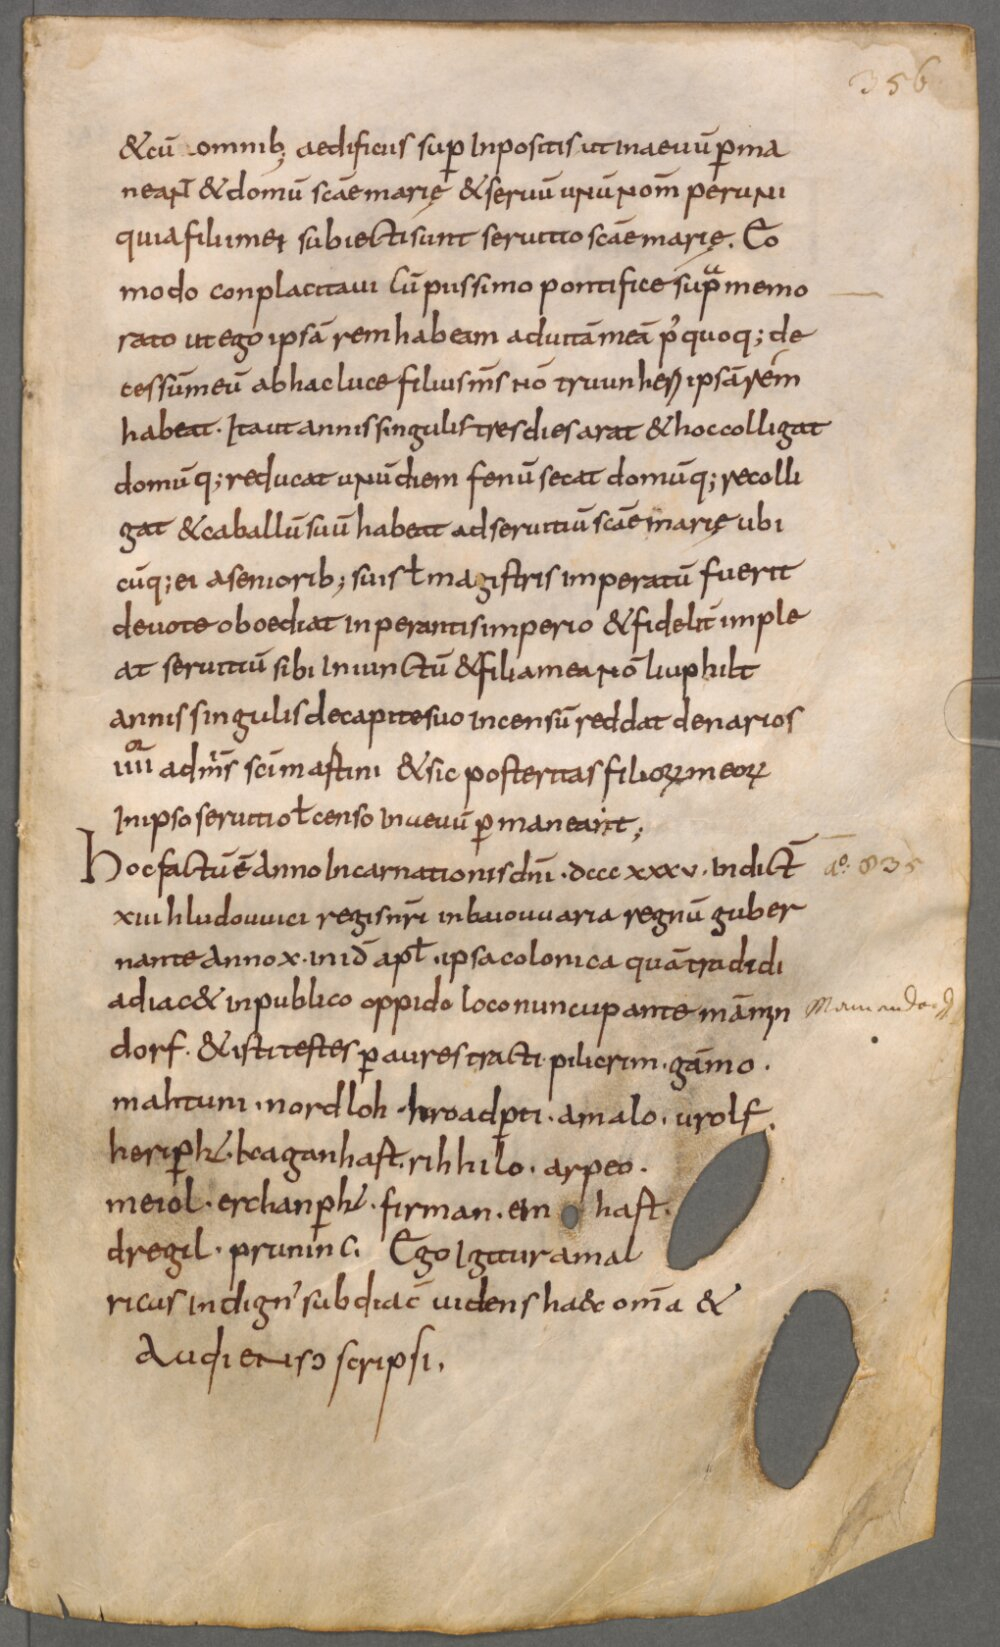 356
&cū omnib; aedificiis sup̱ Inpositis ut inaeuū p̱ma
neaNT̄ & domū scāe marię & seruū uNū Nom̄ peruNi
quia filii mei subiecti sunt seruitio scāe marię. Eo
modo conplacitaui cū piissimo pontifice sup̱ᵃ memo
rato ut ego ipsā rem habeam ad uitā meā p̓ quoq; de
cessūmeū ab hac luce filius m̄s nō truunheri ipsā rem
habeat. Itaut annis singulis tres dies arat & hoc colligat
domūq; reducat uNū diem fenū secat domūq; recolli
gat & caballū suū habeat ad seruitiū scāe marię ubi
cūq; ei a seniorib; suis ł magistris imperatū fuerit
deuote oboediat inperantis imperio & fidelit̄ imple
at seruitiū sibi Iniunctū & filia mea Nō liuphilt
annis singulis de capite suo in censū reddat denarios
iiii̅ᵒʳ ad mīs sc̄i mastini & sic posteritas filioꝝ meoꝝ
In ipso seruitio ł censo in aeuū p̱maneant;
Hoc factū ē Anno Incarnationis dn̄i. dccc xxxv. Indict̄
aº. 835
xiii hludouuici regis nr̄i in baiouuaria regnū guber
nante Anno x. in id̄ apł. ipsa colonica quā tradidi
adiac& in publico oppido loco nuncupante māmin
dorf. & isti testes p̱ aures tracti. pilicrim. gāmo.
mahtuni. nordloh. hroadp̱ti. amalo. urolf.
herip̱ht̄. kaganhaft. rihhilo. arpeo.
meiol. erchanp̱ht̄. firman. ein haft.
dregil. pruninc. Ego Igitur amal
ricus indign̓ subdiac̄ uidens haec om̄a &
Audiens scripsi.